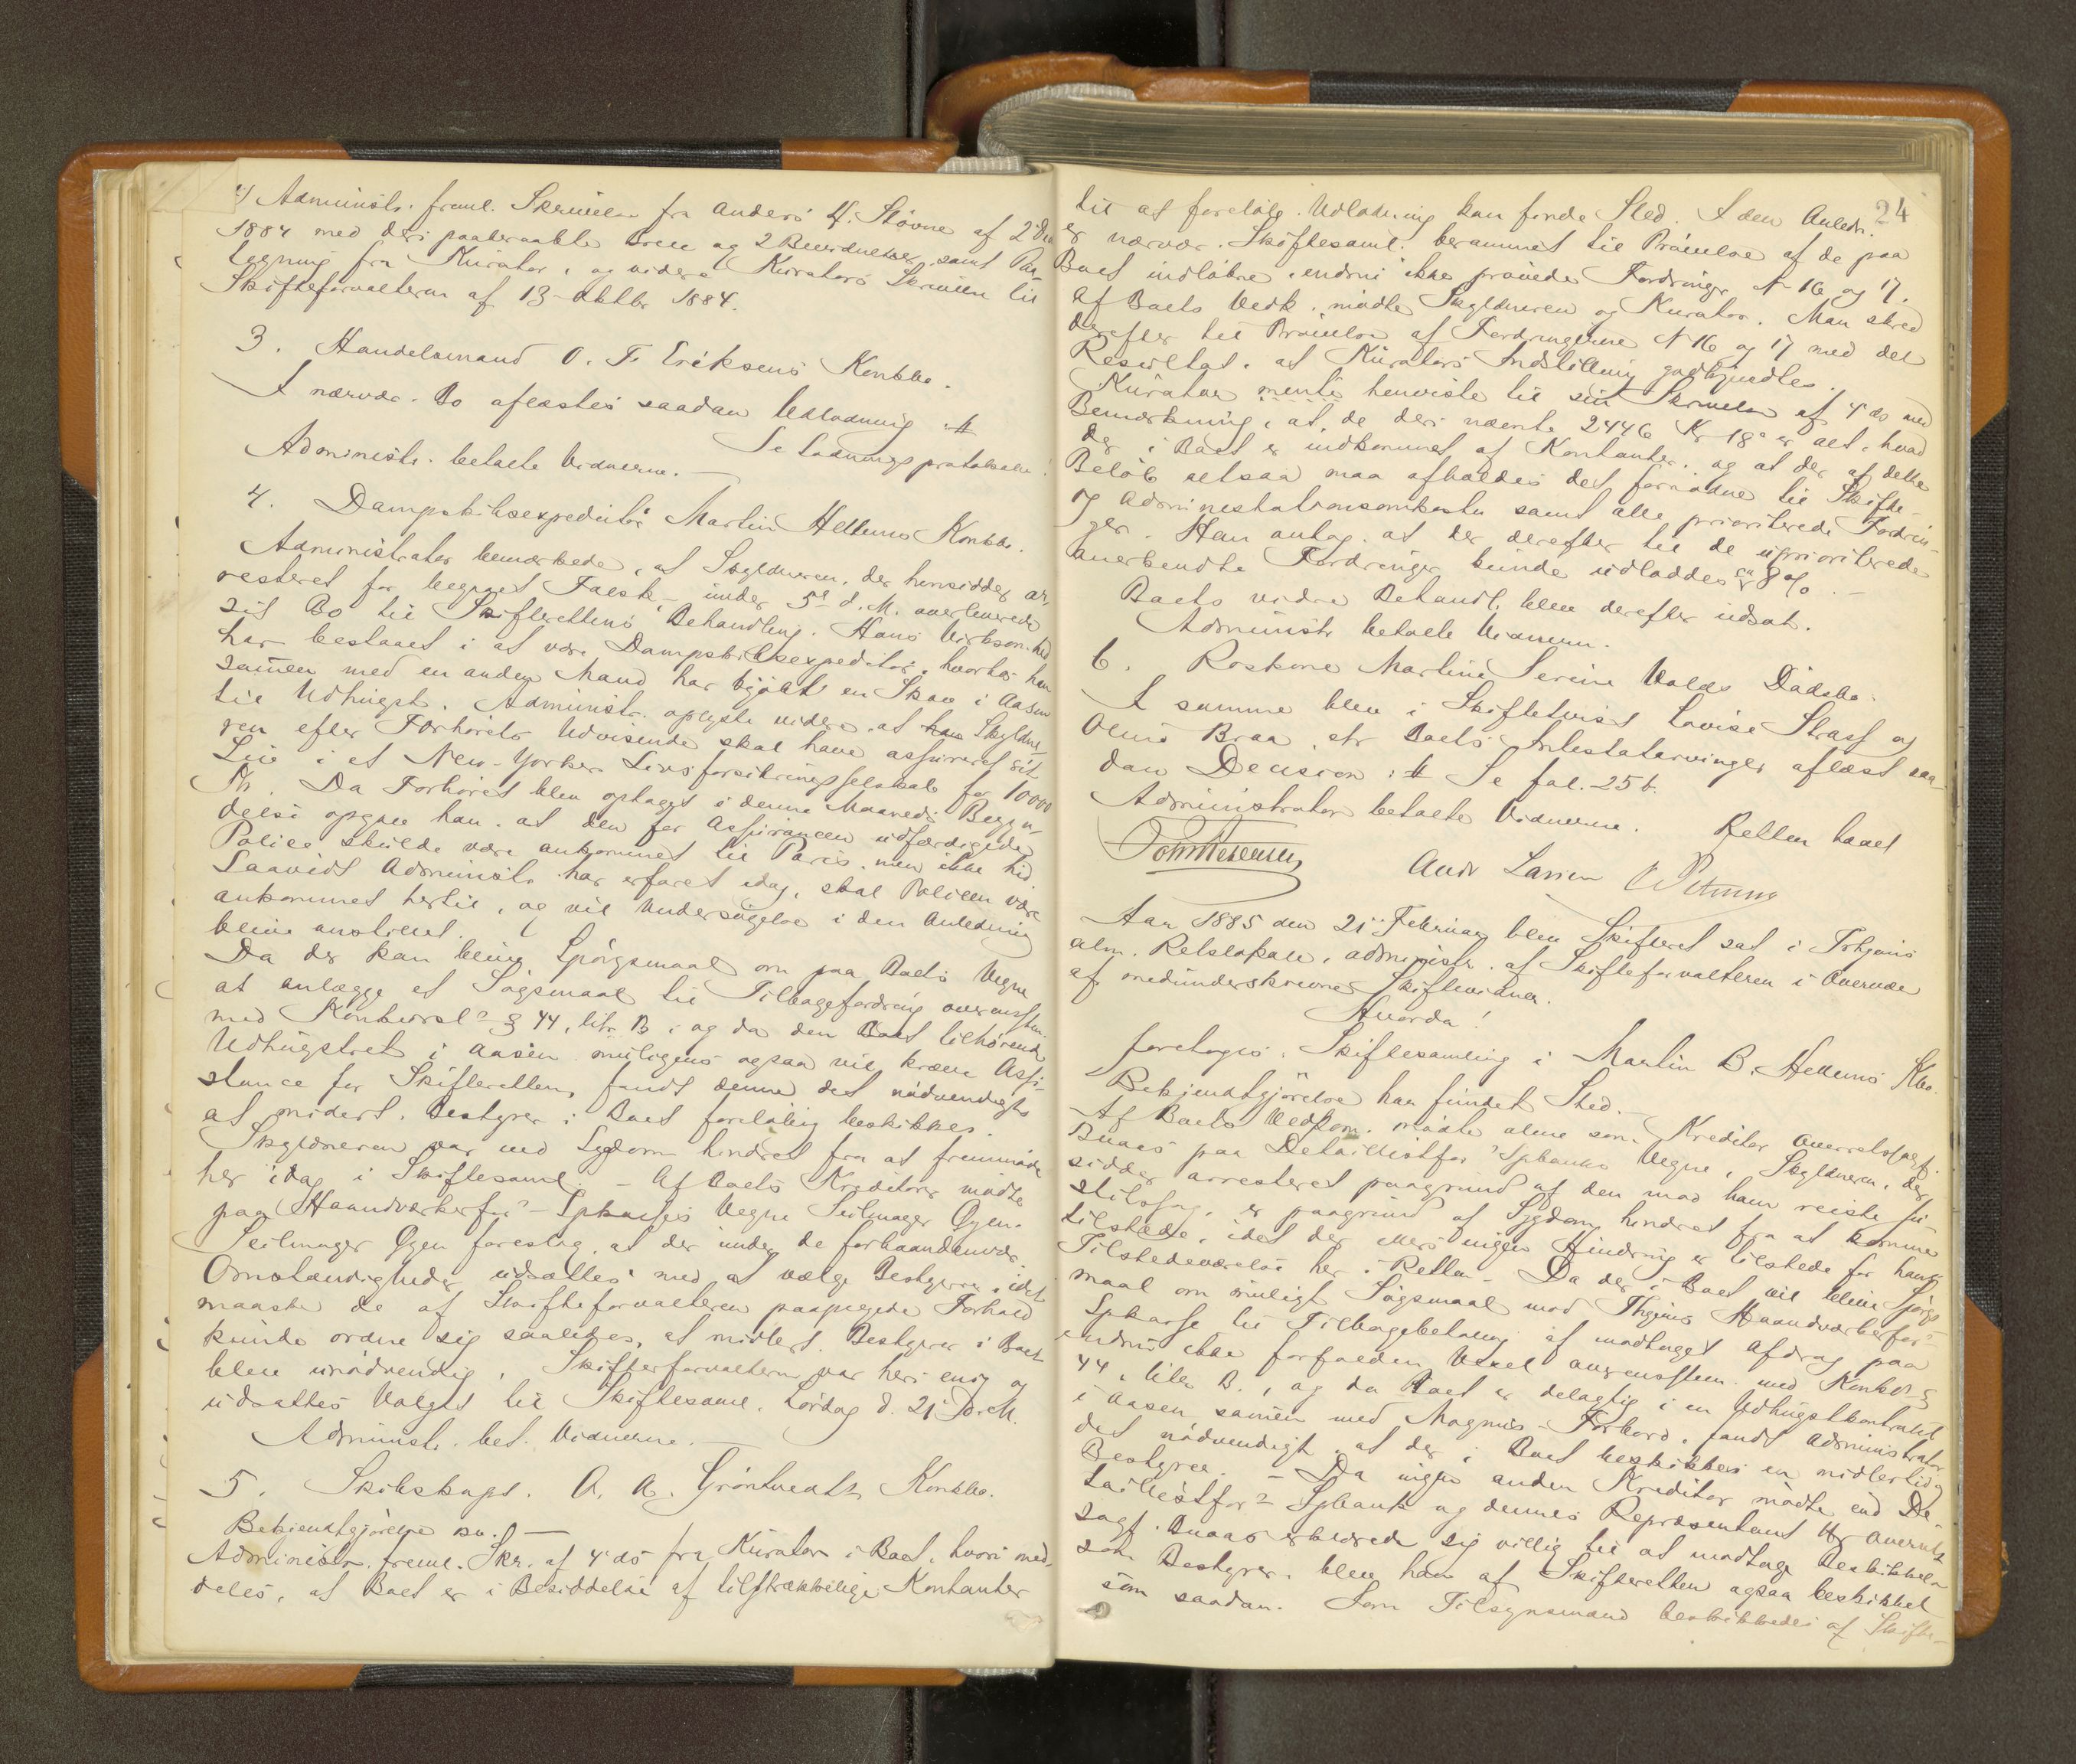 4) Administr. freml. Skrivelse fra Anders H. Støvne af 2 Decb
1884 med deri paaberaabte Brev og 2 Beværdnelser, samt Paa-
tegning fra Kurator, og videre Kurators Skrivelse til
Skifteforvalteren af 13 Oktbr 1884.
3. Handelsmand O. F. Eriksens Konkbo.
I nærvær. Bo aflæstes saadan Udlodning :/:
Se Lodningsprotokollen!
Administr. betalte Vidnerne. —
4. Dampskibsexpeditør Martin Hellems Konkbo.
Administrator bemærkede, at Skyldneren, der hensidder ar-
resteret for begaaet Falsk, under 5te d. M. overleverede
sit Bo til Skifterettens Behandling. Hans Virksomhed
har bestaaet i at være Dampskibsexpeditør, hvorhos han
sammen med en anden Mand har kjøbt en Skov i Aasen
til Udhugst. Administr. oplyste videre at han Skyldne-
ren efter Forhørets Udvisende skal have assureret sit
Liv i et New-Yorker Livsforsikringsselskab for 10000
Kr. Da Forhøret blev optaget i denne Maaneds Begyn-
delse opgav han, at den for Assurancen udfærdigede
Police skulde være ankommet til Paris, men ikke hid.
Saavidt Administr. har erfaret idag, skal Policen være
ankommet hertil, og vil Undersøgelse i den Anledning
blive anstillet.
Da der kan blive Spørgsmaal om paa Boets Vegne
at anlægge et Søgsmaal til Tilbagefordring overensstem.
med Konkursl. § 44, litr. B, og da den Boet tilhørende
Udhugstret i Aasen muligens ogsaa vil kræve Assi-
stance for Skifteretten, fandt denne det nødvendigt
at midlert. Bestyrer i Boet foreløbig beskikkes.
Skyldneren var ved Sygdom hindret fra at fremmøde
her idag i Skiftesaml. – Af Boets Kreditorer mødte
paa Haandværkerfor.s Spkasses Vegne Seilmager Gyen.
Seilmager Gyen foreslog, at der under de forhaandenvær.
Omstændigheder udsattes med at vælge Bestyrer, idet
maaske de af Skifteforvalteren paapegede Forhold
kunde ordne sig saaledes, at midlert. Bestyrer i Boet
blev unødvendig. Skifteforvalteren var heri enig og
udsattes Valget til Skiftesaml. Lørdag d. 21 d. M.
Administr. bet. Vidnerne. —
5. Skibskapt. A. A. Grøntvedts Konkbo.
Bekjendtgjørelse
Administr. freml. Skr. af 4 ds fra Kurator i Boet, hvori med-
deles, at Boet er i Besiddelse af tilstrækkelige Kontanter
24
til at foreløb. Udlodning kan finde Sted. I den Anledn.
er nærvær. Skiftesaml. berammet til Prøvelse af de paa
Boet indløbne, endnu ikke prøvede Fordringer N 16 og 17.
Af Boets Vedk. mødte Skyldneren og Kurator. Man skred
derefter til Prøvelse af Fordringerne N 16 og 17 med det
Resultat, at Kurators Indstilling godkjendtes.
Kurator mente henviste til sin Skrivelse af 4 ds med
Bemærkning, at de deri nævnte 2446 Kr 18 ø er alt, hvad
der i Boet er indkommet af Kontanter, og at der af dette
Beløb altsaa maa afholdes det fornødne til Skifte-
og Administrationsomkostn. samt alle prioriterede Fordrin-
ger. Han antog, at der derefter til de uprioriterede
anerkendte Fordringer kunde udloddes ca 8 %. —
Boets videre Behandl. blev derefter udsat.
Administr. betalte Vidnerne.
6. Roskone Martine Serine Valds Dødsbo.
I samme blev i Skiftetvist Lovise Strass og
Oline Braa ctr Boets Intestatarvinger aflæst saa-
dan Decision :/: Se fol. 25 b.
Administrator betalte Vidnerne. Retten hævet
Andr Larsen
Aar 1885 den 21 Februar blev Skifteret sat i Trhjems
alm. Retslokale, administr. af Skifteforvalteren i Overvær
af medunderskrevne Skiftevidner.
Hvorda!
foretoges: Skiftesamling i Martin B. Hellems Kbo.
Bekjendtgjørelse har fundet Sted. —
Af Boets Vedkom. mødte alene som Kreditor Overretssagf.
Buaas paa Detaillistfor.s Spbanks Vegne. Skyldneren, der
sidder arresteret paagrund af den mod ham reiste Ju-
stitssag, er paagrund af Sygdom hindret fra at komme
tilstede, idet der ellers ingen Hindring er tilstede for hans
Tilstedeværelse her i Retten. – Da der i Boet vil blive Spørgs-
maal om muligt Søgsmaal mod Thjems Haandværkerfor.s
Spkasse til Tilbagebetaling af modtaget Afdrag paa
endnu ikke forfalden Vexel overensstem. med Konkl. §
44, liter B., og da Boet er delagtig i en Udhugstkontrakt
i Aasen sammen med Magnus Forbord, fandt Administrator
det nødvendigt, at der i Boet beskikkes en midlertidig
Bestyrer. – Da ingen anden Kreditor mødte end De-
taillistfor.s Spbank og dennes Repræsentant Hr Overrets
sagf. Buaas erklærede sig villig til at modtage Beskikkelse
som Bestyrer, blev han af Skifteretten ogsaa beskikket
som saadan. Som Tilsynsmand beskikkedes af Skifte-